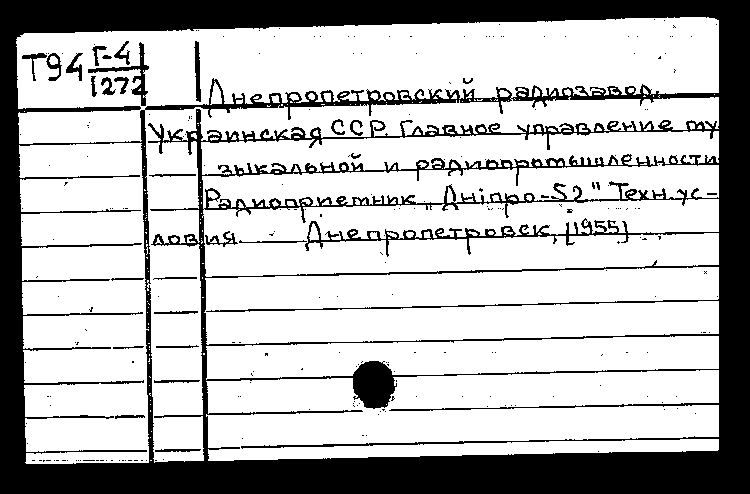 Т94 Г-4
1272
Днепропетровский радиозавод.
Украинская ССР. Главное управление му
зыкальной и радиопромышленности
Радиоприемник „Дніпро-52" Техн. ус-
ловия. Днепропетровск, [1955]